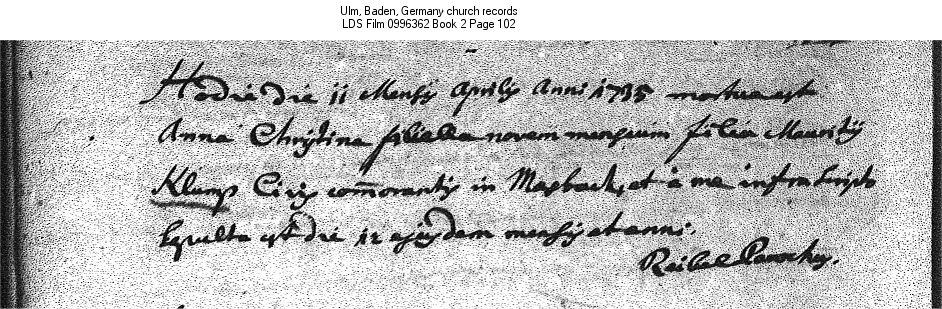 Ulm, Baden, Germany church records
LDS Film 0996362 Book 2 Page 102
Hodie die 11 Mensis Aprilis Anni 1735 mortua est
Anna Christina filiella novem mensium filia Mauritij
Klump Civis com̄orantis in Maÿbach, et à me infra scripto
sepulta est die 12 ejusdem mensis et anni.
Reibel Parochus.